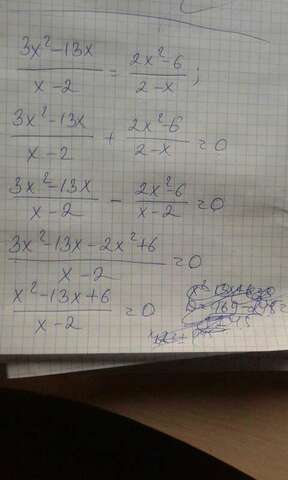 3x²-13x / x-2 = 2x²-6 / 2-x ;
3x²-13x / x-2 + 2x²-6 / 2-x = 0
3x²-13x / x-2 - 2x²-6 / x-2 = 0
3x²-13x-2x²+6 / x-2 = 0
x²-13x+6 / x-2 = 0